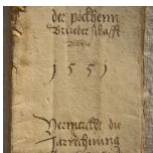 der pöckhenn
Brueder schafft
1551
Vermerckht die
Jarrechnung